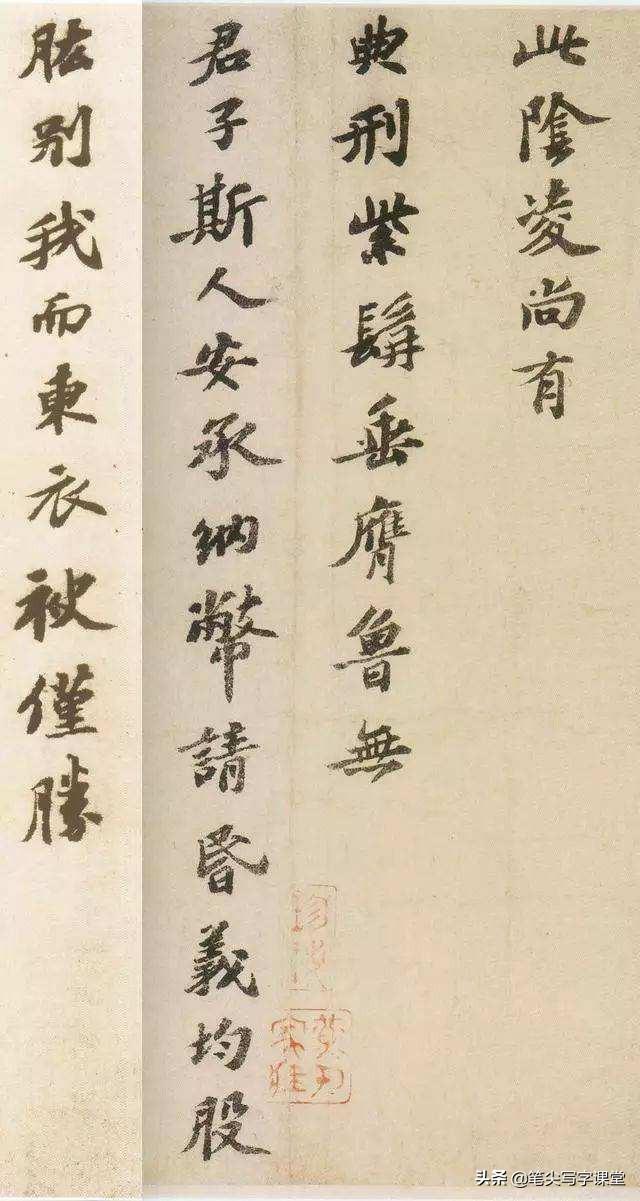 此陰凌尚有
典刑紫髯垂膺魯無
君子斯人安承納幣請昏義均股
肱别我而東衣被僅勝
头条@笔尖写字课堂